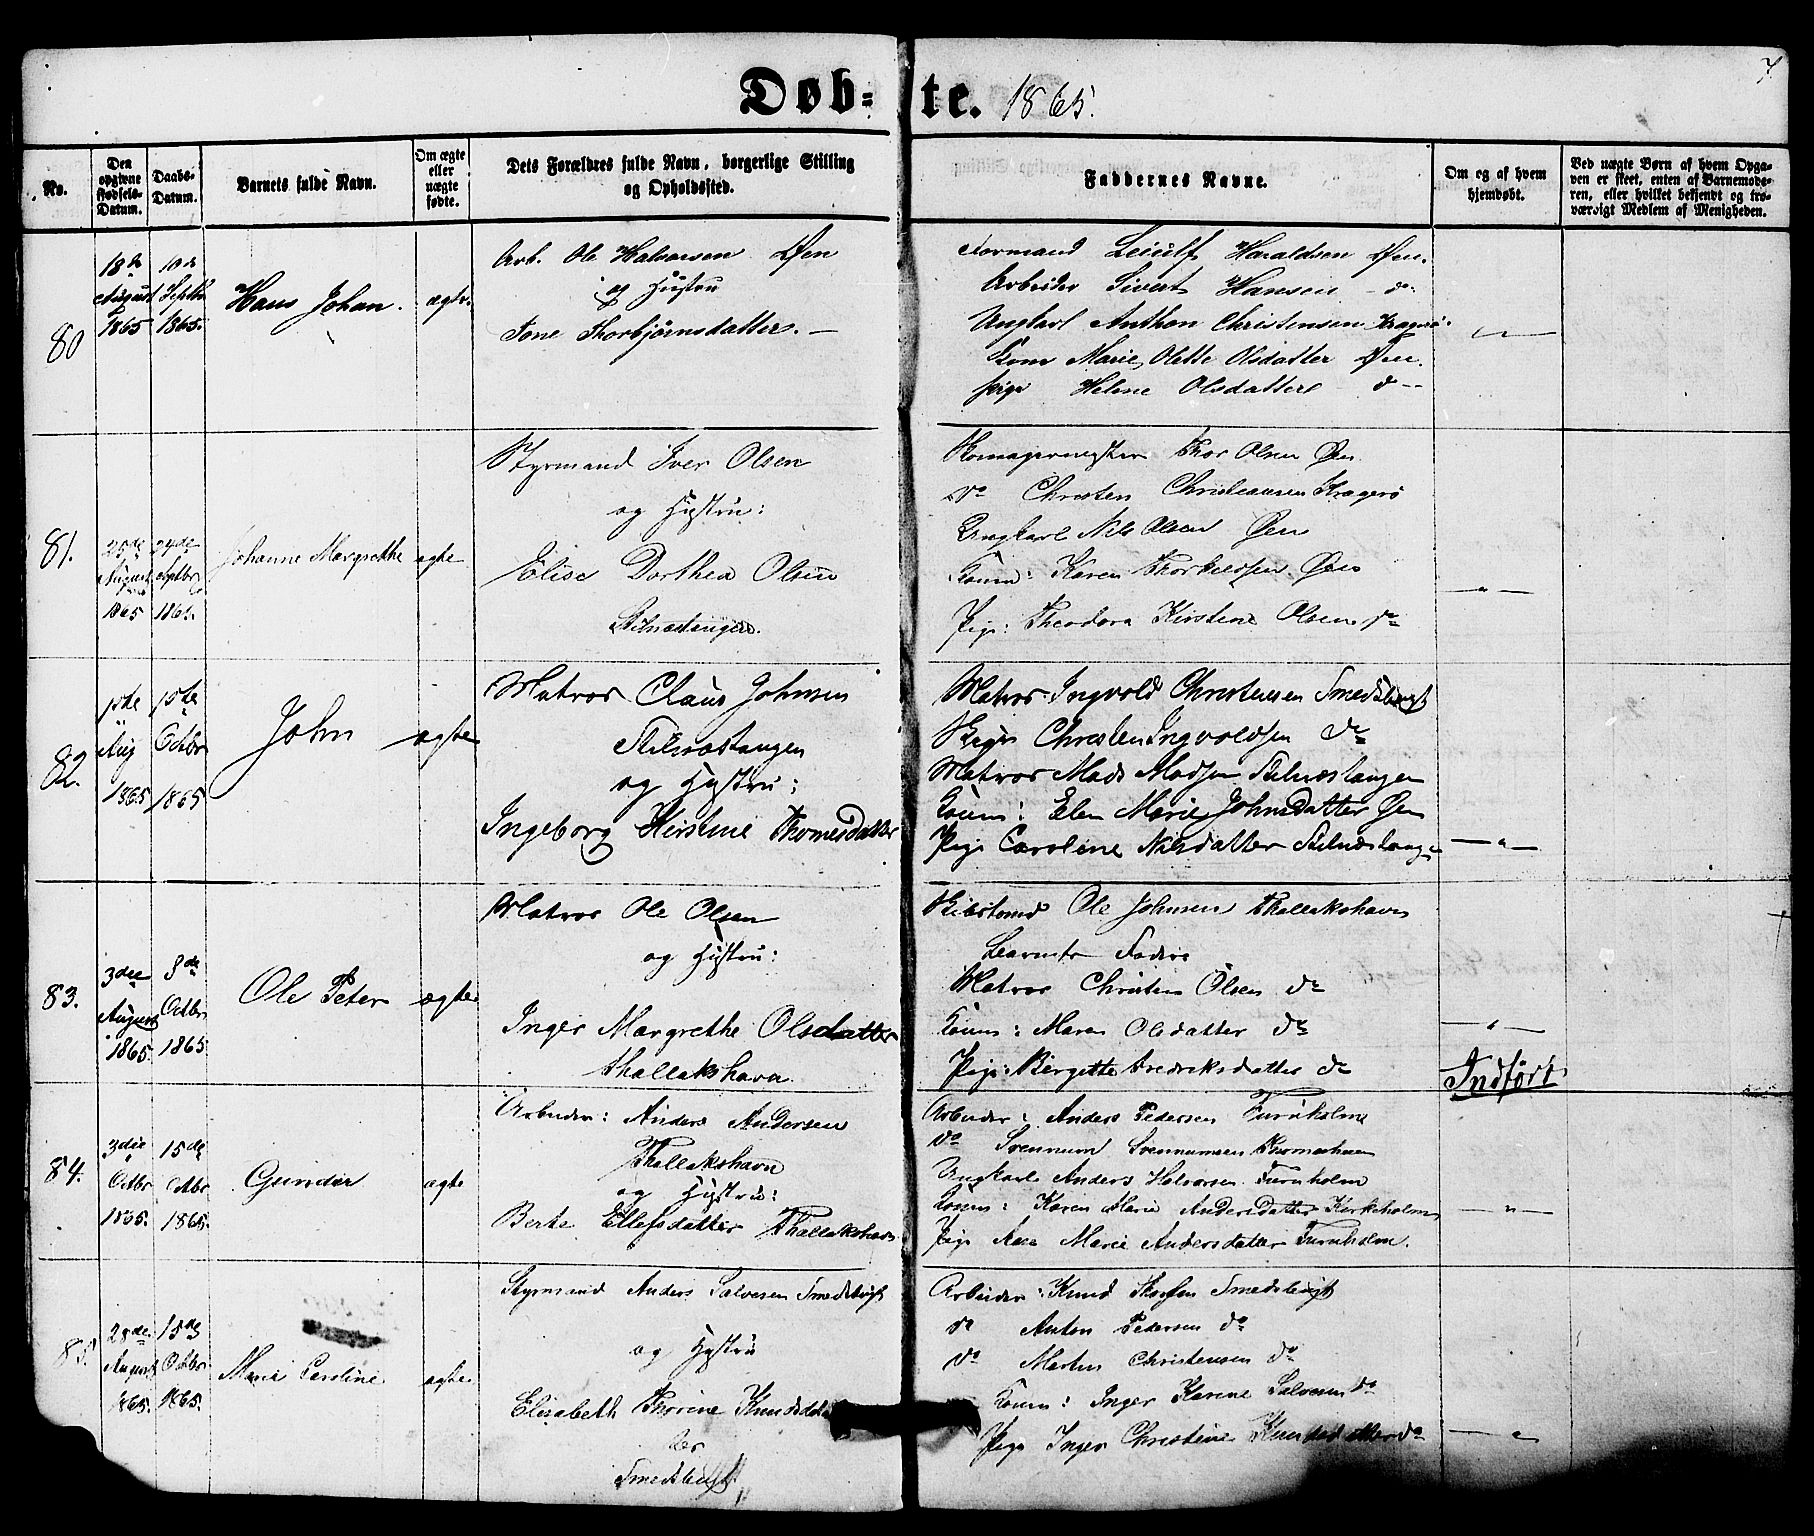 Døb-te. 1865.
7
No.
Den opgivne Fødsels-Datum.
Daabs-Datum.
Barnets fulde Navn.
Om ægte eller uægte fødte.
Dets Forældres fulde Navn, borgerlige Stilling og Opholdssted.
Faddernes Navne.
Om og af hvem hjemdøbt.
Ved uægte Børn af hvem Opgaven er skeet, enten af Barnemoderen, eller hvilket bekjendt og troværdigt Medlem af Menigheden.
80
18de August 1865
10de Septbr 1865.
Hans Johan.
ægte.
Arb. Ole Halvorsen Øen
og Hustru
Tone Thorbjørnsdatter. —
Formand Leiulf Haraldsen Øen.
Arbeider Sivert Hansen do
Ungkarl Anthon Christensen Kragerø.
Kone Marie Olette Olsdatter Øen.
Pige Helene Olsdatter do
— " —
81.
25de August 1865
24de Septbr 1865.
Johanne Margrethe
ægte
Styrmand Iver Olsen
og Hustru:
Elise Dorthea Olsen
Stilnæstangen.
Skomagermester Thor Olsen Øen
do Christen Christiansen Kragerø
Ungkarl Nils Olsen Øen
Koum: Karen Thorkildsen Øen
Pige: Theodora Kirstine Olsen do
— " —
82.
15de Aug 1865
15de Octbr 1865
John
ægte
Matros Claus Johnsen
Stilnæstangen
og Hustru:
Ingeborg Kirstine Thomesdatter
Matros Ingvold Christensen Smedsbugt
Christen Ingvoldsen do
Matros Mads Madsen Stilnæstangen
Koum: Elen Marie Johnsdatter Øen
Pige Caroline Nilsdatter Stilnæstang
— " —
83.
3die August 1865.
8de Octbr 1865
Ole Peter
ægte
Matros Ole Olsen
og Hustru:
Inger Margrethe Olsdatter
Thallakshavn
Ole Johnsen Thallakshavn
Barnets Fader
Matros Christen Olsen do
Koum: Maren Olsdatter do
Pige: Birgitte Fredriksdatter do
— " —
Indført
84.
3die Octbr 1865.
15de Octbr 1865.
Gunder
ægte
Arbeider: Anders Andersen
Thallakshavn
og Hustru:
Berte Ellefsdatter Thallakshavn
Arbeider: Anders Pedersen Furuholm
do Svennum Svennumsen
Ungkarl Anders Halvorsen Furuholm
Koum: Karen Marie Andersdatter Kirkeholm
Pige Ane Marie Andersdatter Furuholm.
— " —
85.
28de August 1865.
15de Octbr 1865.
Marie Caroline
ægte
Styrmand Anders Salvesen Smedsbugt
og Hustru
Elisabeth Thorine Knudsdat
ter
Smedsbugt
Arbeider: Knud Smedsbugt
do Anton Pedersen do
do Martin Christensen do
Koum: Inger Karine Salvesen do
Pige Inger Christine Knudsdatter do
— " —